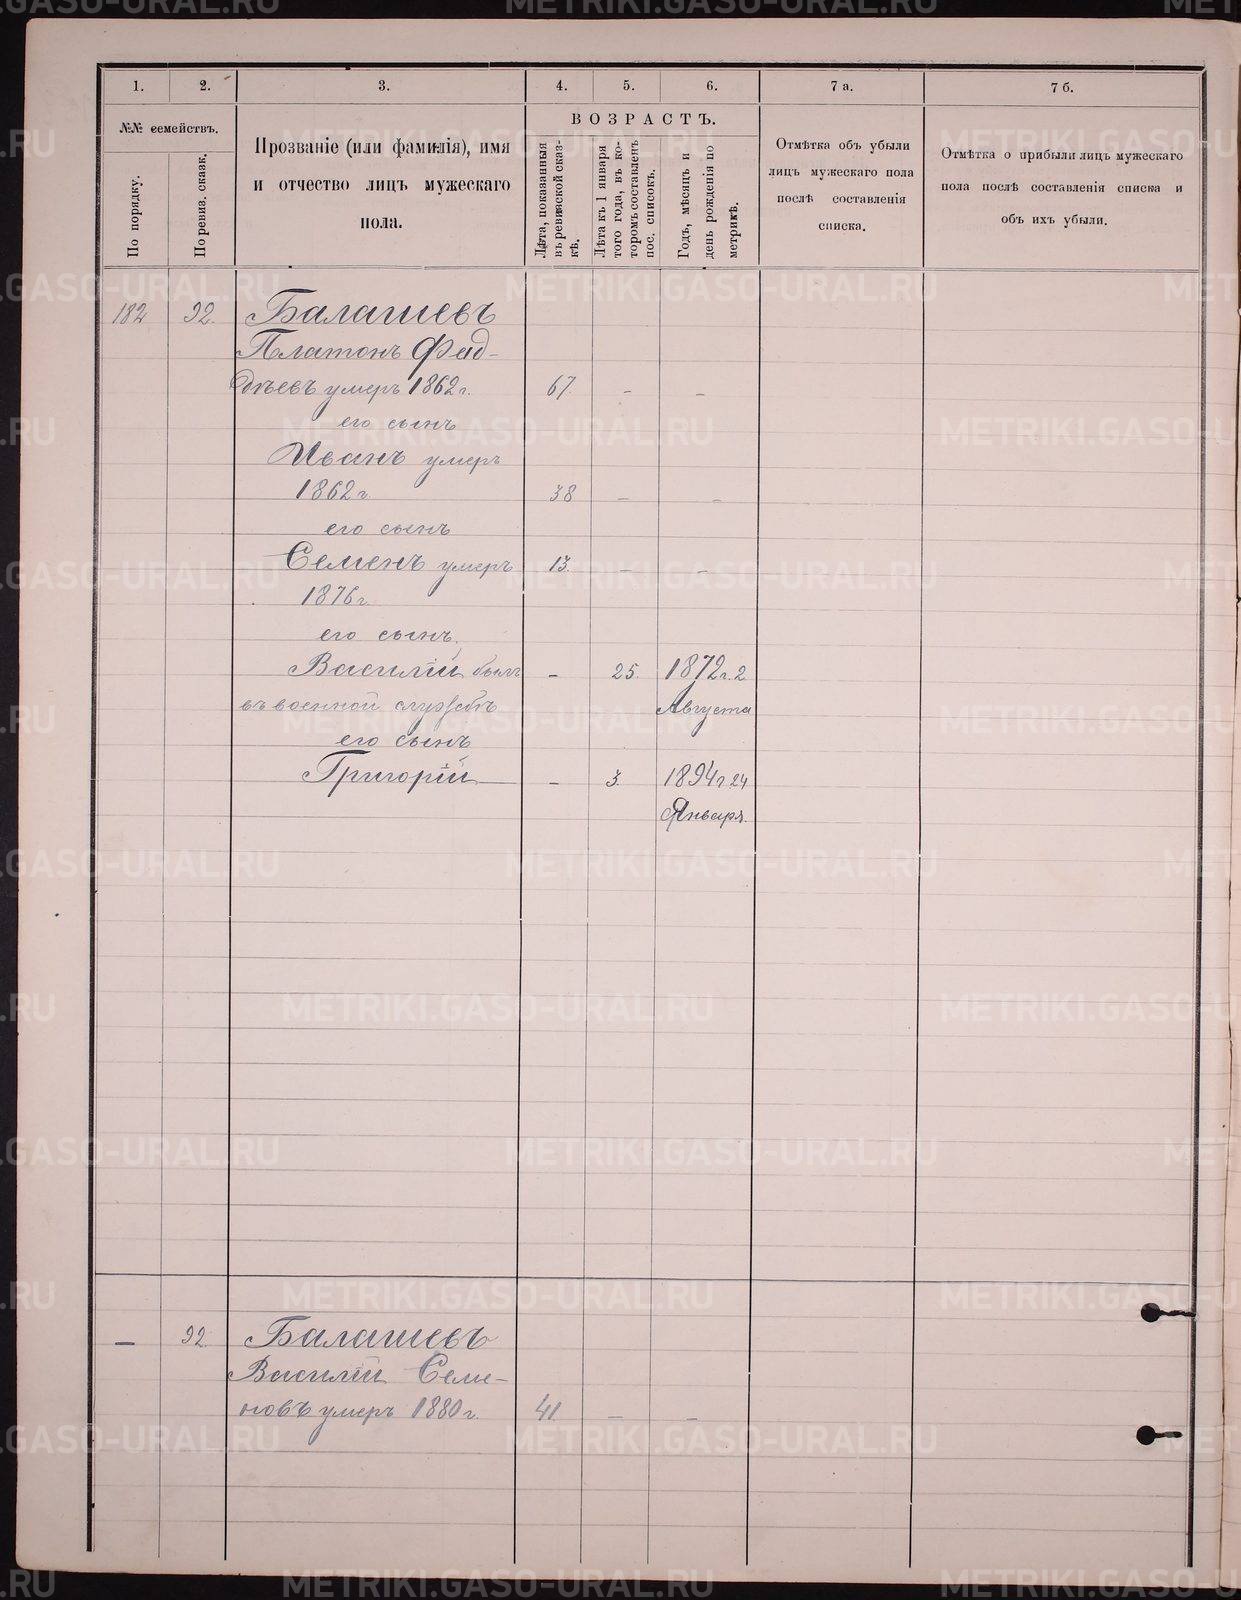 1. 2. 3. 4. 5. 6. 7 а. 7 б.
№№ семействъ.
По порядку.
По ревиз. сказк.
Прозваніе (или фамилія), имя
и отчество лицъ мужескаго
пола.
ВОЗРАСТЪ.
Лѣта, показанныя
въ ревизской сказ-
кѣ.
Лѣта къ 1 января
того года, въ ко-
торомъ составленъ
пос. списокъ.
Годъ, мѣсяцъ и
день рожденія по
метрикѣ.
Отмѣтка объ убыли
лицъ мужескаго пола
послѣ составленія
списка.
Отмѣтка о прибыли лицъ мужескаго
пола послѣ составленія списка и
объ ихъ убыли.
182 92. Балашевъ
Платонъ Фад-
дѣевъ умеръ 1862 г. 67. – –
его сынъ
Иванъ умеръ
1862 г. 38 – –
его сынъ
Семенъ умеръ 13. – –
1876 г.
его сынъ.
Василій былъ – 25. 1872 г. 2
въ военной службѣ Августа
его сынъ
Григорій – 3. 1894 г 24
Января.
– 92. Балашевъ
Василій Семе-
новъ умеръ 1880 г. 41 – –
METRIKI.GASO-URAL.RU